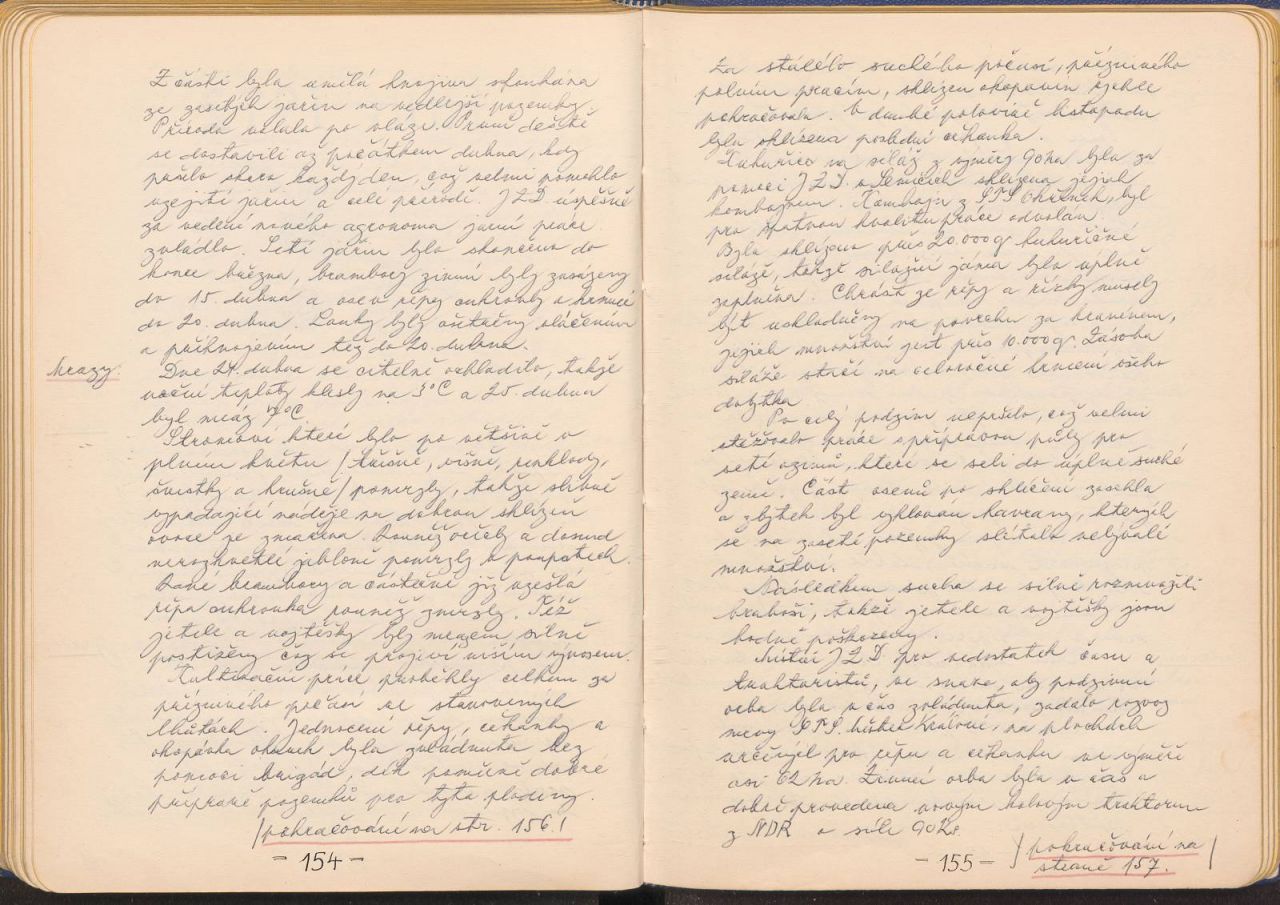 Z části byla umělá hnojiva splouhána
ze zasetých jařin na vedlejší pozemky.
Příroda volala po vláze. První deště
se dostavili až počátkem dubna, kdy
pršelo skoro každý den, což velmi pomohlo
vzejití jařin a celé přírodě. JZD úspěšně
za vedení nového agronoma jarní práce
zvládlo. Setí jařin bylo skončeno do
konce března, brambory zimní byly zasázeny
do 15. dubna a osev řepy cukrovky a krmné
do 20. dubna. Louky byly ošetřeny vláčením
a přihnojením též do 20. dubna.
Mrazy:
Dne 24. dubna se citelně ochladilo, takže
noční teploty klesly na 3°C a 25. dubna
byl mráz 7°C.
Stromoví které bylo po většině v
plném květu / třešně, višně, renklody,
švestky a hrušně / pomrzly, takže slibně
vypadající naděje na dobrou sklizeň
ovoce je zmařena. Rovněž ořechy a dosud
nerozkvetlé jabloně pomrzly v poupatech.
Rané brambory a částečně již vzešlá
řepa cukrovka rovněž zmrzly. Též
jetele a vojtěšky byly mrazem silně
postiženy což se projeví nižším výnosem.
Kultivační práce proběhly celkem za
příznivého počasí ve stanovených
lhůtách. Jednocení řepy, čekanky a
okopávka okurek byla zvládnuta bez
pomoci brigád, dík poměrně dobré
přípravě pozemků pro tyto plodiny.
/pokračování na str. 156!
- 154 -
Za stálého suchého počasí, příznivého
polním pracím, sklizeň okopanin rychle
pokračovala. V druhé polovině listopadu
byla sklizena poslední čekanka.
Kukuřice na siláž z výměry 90 ha byla za
pomoci JZD v Semicích sklizena jejich
kombajnem. Kombajn z STS, byl
pro špatnou kvalitu práce odvolán.
Bylo sklizeno přes 20.000 q kukuřičné
siláže, takže silážní jáma byla úplně
zaplněna. Chrást ze řepy a řízky musely
být uskladněny na povrchu za kravínem,
jejich množství jest přes 10.000 q. Zásoba
siláže stačí na celoroční krmení všeho
dobytka
Po celý podzim nepršelo, což velmi
stěžovalo práce s přípravou půdy pro
setí ozimů, které se seli do úplně suché
země. Část osevů po sklíčení zaschla
a zbytek byl vyklován havrany, kterých
se na zaseté pozemky slítalo nebývalé
množství.
Následkem sucha se silně rozmnožili
hraboši, takže jetele a vojtěšky jsou
hodně poškozeny.
Místní JZD pro nedostatek času a
traktoristů, ve snaze, aby podzimní
orba byla včas zvládnutá, zadalo rozvoz
mrvy STS, na plochách
určených pro řepu a čekanku ve výměře
asi 62 ha. Zimní orba byla včas a
dobře provedena novým kolovým traktorem
z NDR o síle 90 Ks.
/pokračování na /
straně 157.
- 155 -